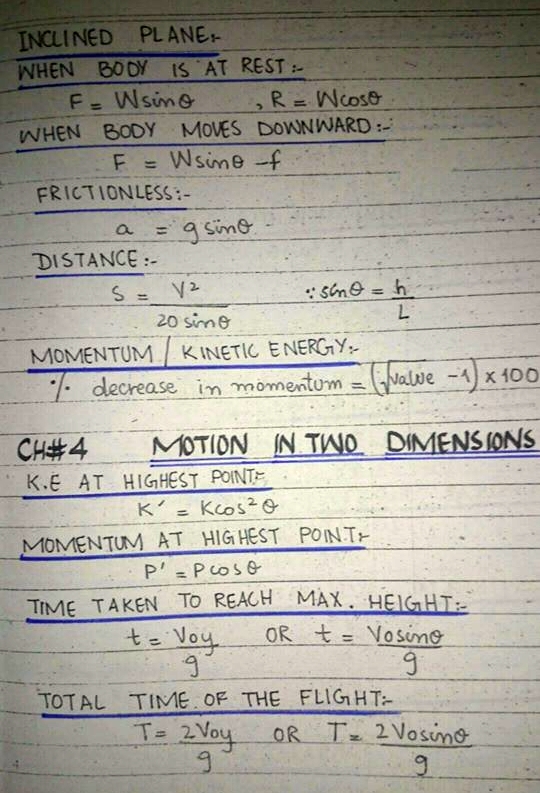 INCLINED PLANE:-
WHEN BODY IS AT REST:-
F = Wsinθ , R = Wcosθ
WHEN BODY MOVES DOWNWARD:-
F = Wsinθ -f
FRICTIONLESS:-
a = gsinθ
DISTANCE:-
S = V²/20 sinθ ∵ sinθ = h/L
MOMENTUM / KINETIC ENERGY:-
% decrease in momentum = (√value -1) × 100
CH#4 MOTION IN TWO DIMENSIONS
K.E AT HIGHEST POINT:-
K' = Kcos²θ
MOMENTUM AT HIGHEST POINT:-
P' = Pcosθ
TIME TAKEN TO REACH MAX. HEIGHT:-
t = Voy/g OR t = Vosinθ/g
TOTAL TIME OF THE FLIGHT:-
T = 2Voy/g OR T = 2Vosinθ/g